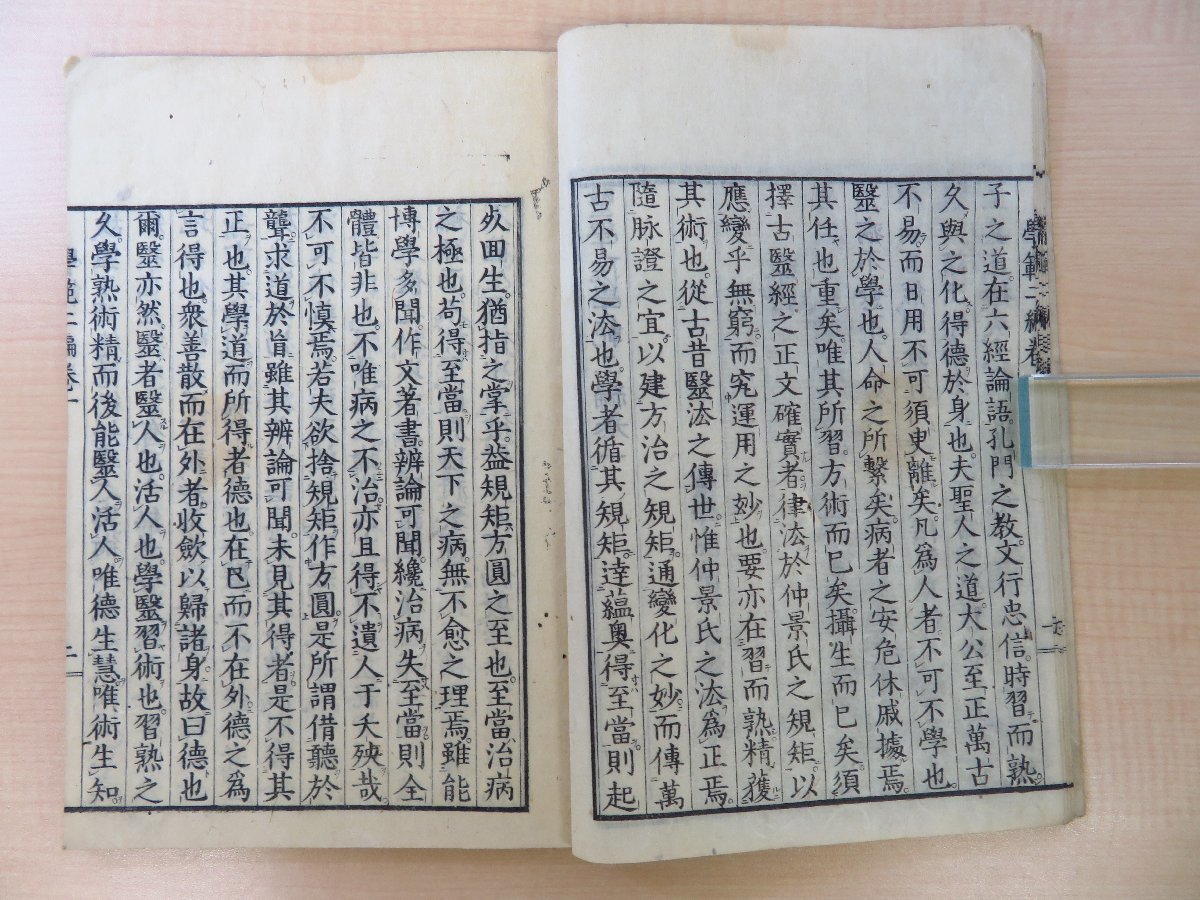 子之道在六經論語孔門之教文行忠信時習而熟
久與之化得德於身也夫聖人之道大公至正萬古
不易而日用不可須臾離矣凡爲人者不可不學也
醫之於學也人命之所繋矣病者之安危休戚據焉
其任也重矣唯其所習方術而已矣攝生而已矣須
擇古醫經之正文確實者律法於仲景氏之規矩以
應變乎無窮而究運用之妙也要亦在習而熟精獲
其術也從古昔醫法之傳世惟仲景氏之法爲正焉
隨脉證之宜以建方治之規矩通變化之妙而傳萬
古不易之法也學者循其規矩達蘊奧得至當則起
夾田生猶指之掌乎益規矩方圓之至也至當治病
之極也苟得至當則天下之病無不愈之理焉雖能
博學多聞作文著書辨論可聞纔治病失至當則全
體皆非也不唯病之不治亦且得不遺人于夭殃哉
不可不慎焉若夫欲捨規矩作方圓是所謂借聽於
聾求道於盲雖其辨論可聞未見其得者是不得其
正也其學道而所得者德也在己而不在外德之爲
言得也衆善散而在外者收斂以歸諸身故曰德也
爾醫亦然醫者醫人也活人也學醫習術也習熟之
久學熟術精而後能醫人活人唯德生慧唯術生知
學範二編卷一
二